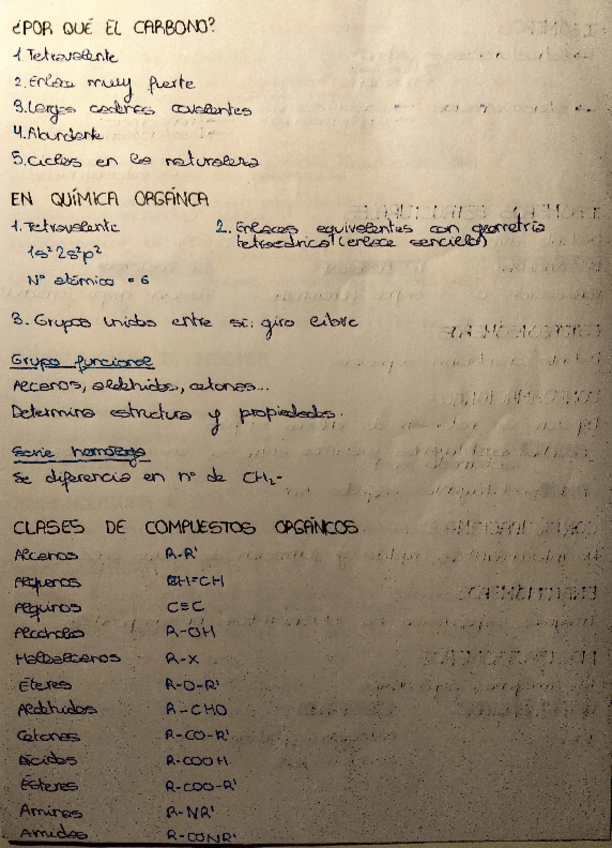 ¿POR QUÉ EL CARBONO?
1. Tetravalente
2. Enlace muy fuerte
3. Largas cadenas covalentes
4. Abundante
5. Ciclos en la naturaleza
EN QUÍMICA ORGÁNCA
1. Tetravalente
1s² 2s² p²
Nº atómico = 6
2. Enlaces equivalentes con geometría
tetraédrica! (enlace sencillo)
3. Grupos unidos entre sí: giro libre
Grupo funcional
Alcanos, aldehidos, cetonas...
Determina estructura y propiedades.
Serie homóloga
Se diferencia en nº de CH₂-
CLASES DE COMPUESTOS ORGÁNCOS
Alcanos R-R'
Alquenos CH=CH
Alquinos C≡C
Alcoholes R-OH
Haloalcanos R-X
Éteres R-O-R'
Aldehidos R-CHO
Cetonas R-CO-R'
Ácidos R-COOH
Ésteres R-COO-R'
Aminas R-NR'
Amidas R-CONR'